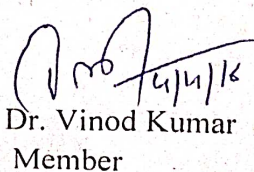 Dr. Vinod Kumar
Member